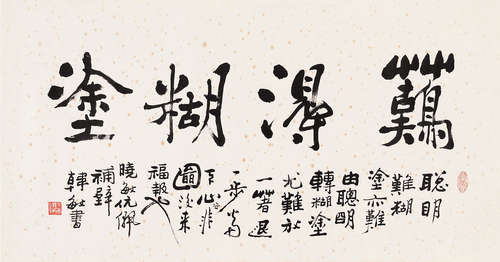 難得糊塗
聰明
難糊
塗亦難
由聰明
轉糊塗
尤難放
一著退
一步當
下心非
圖後來
福報也
曉敏伉儷
補壁
韓敏書